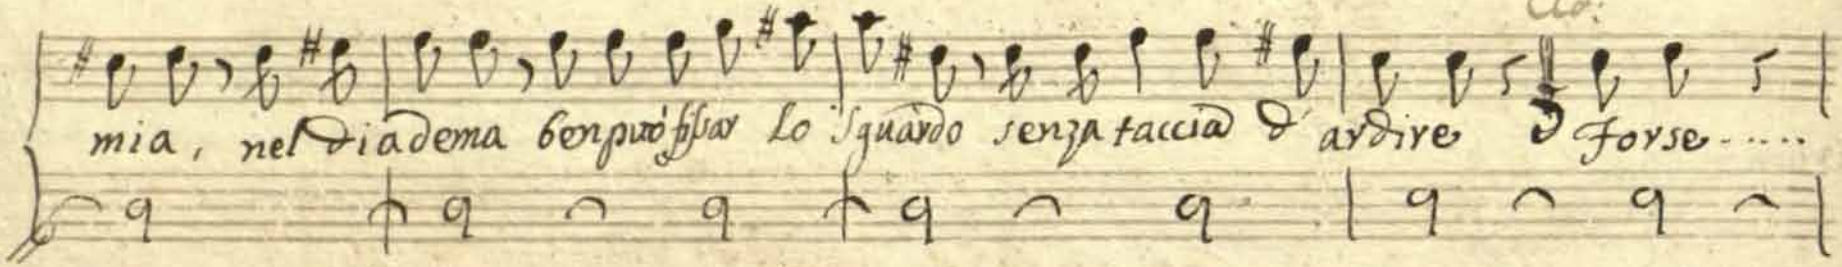 mia, nel diadema ben può fissar lo sguardo senza taccia d'ardire forse......